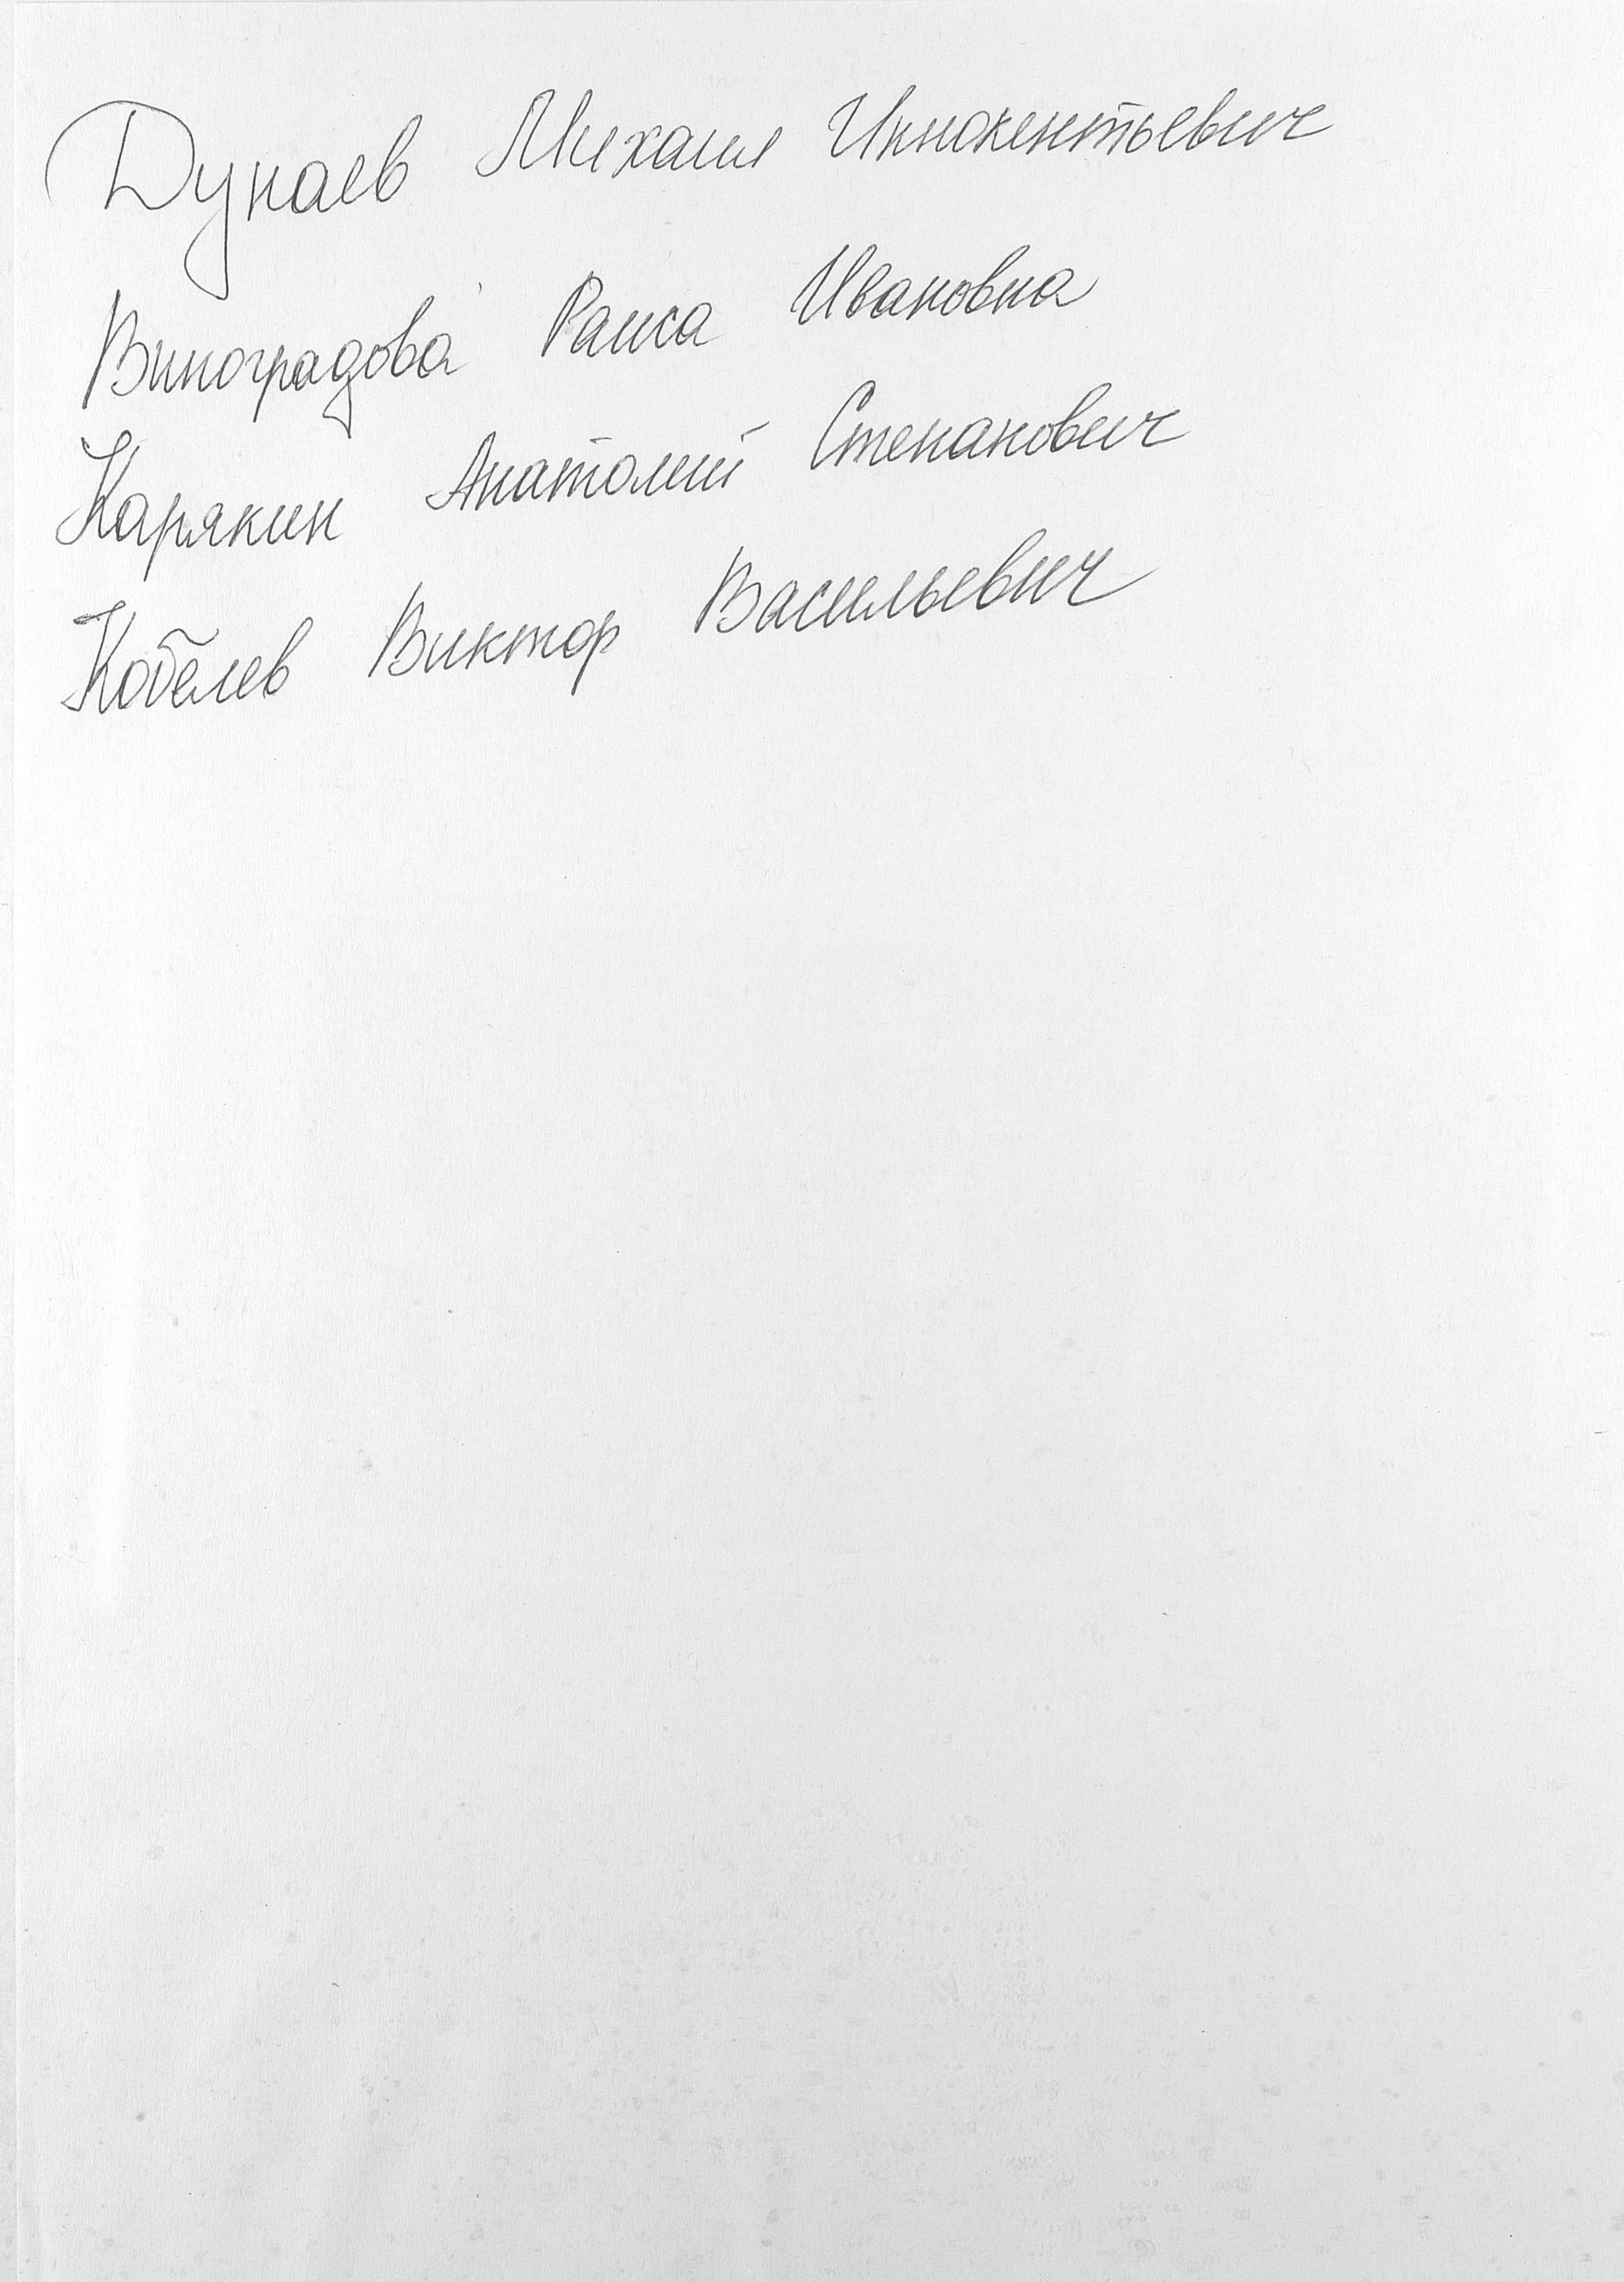 Дунаев Михаил Иннокентьевич
Виноградова Раиса Ивановна
Карякин Анатолий Степанович
Кобелев Виктор Васильевич